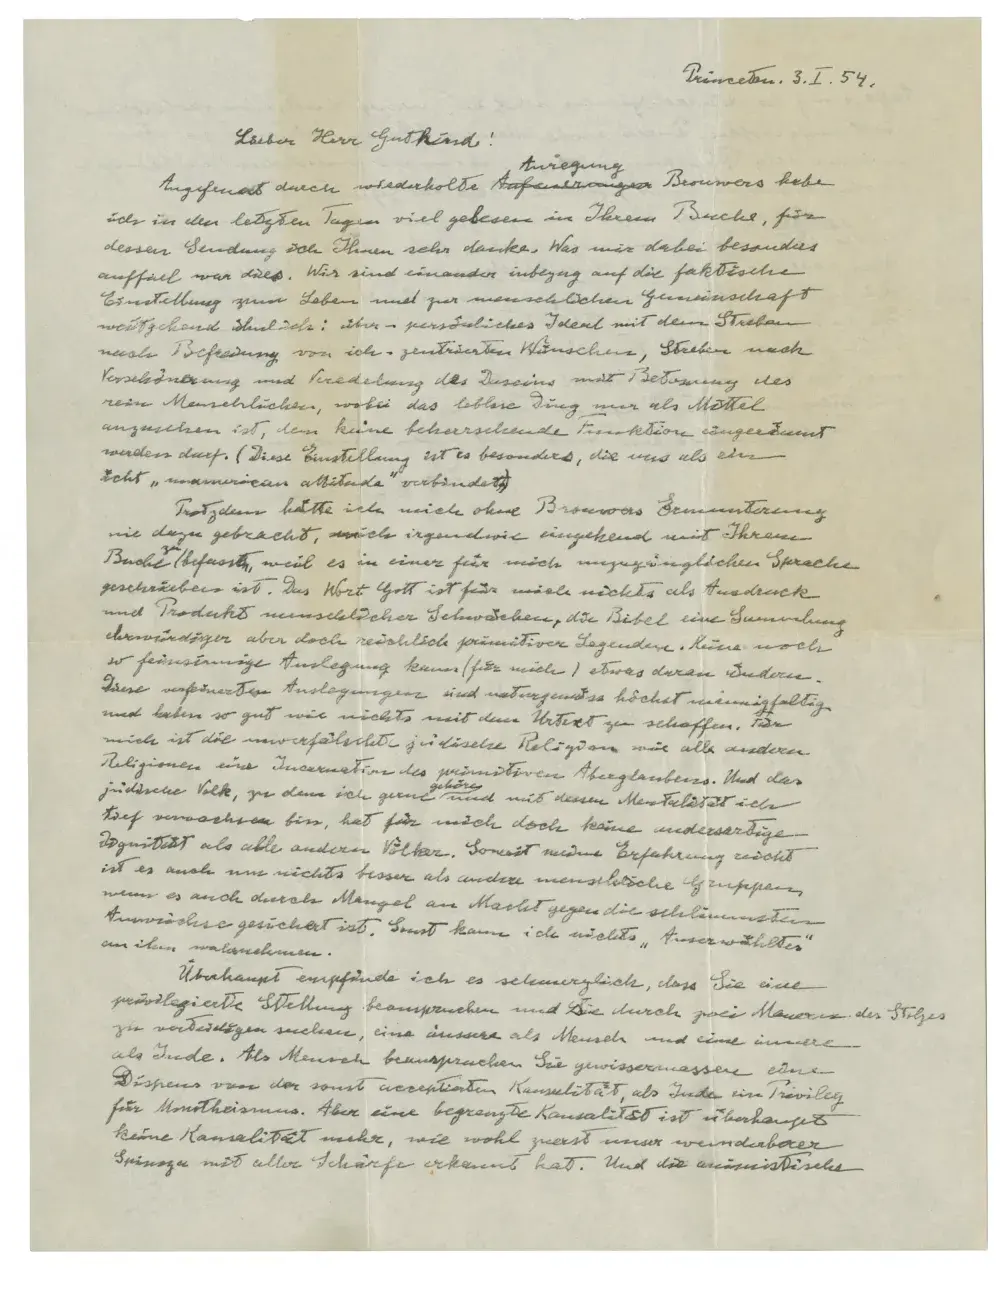 Princeton. 3. I. 54.
Lieber Herr Gutkind!
Anregung
Angefeuert durch wiederholte Brouwers habe
ich in den letzten Tagen viel gelesen in Ihrem Buche, für
dessen Sendung ich Ihnen sehr danke. Was mir dabei besonders
auffiel war dies. Wir sind einander inbezug auf die faktische
Einstellung zum Leben und zur menschlichen Gemeinschaft
weitgehend ähnlich: über-persönliches Ideal mit dem Streben
nach Befreiung von ich-zentrierten Wünschen, Streben nach
Verschönerung und Veredelung des Daseins mit Betonung des
rein Menschlichen, wobei das leblose Ding nur als Mittel
anzusehen ist, dem keine beherrschende Funktion eingeräumt
werden darf. (Diese Einstellung ist es besonders, die uns als ein
ächt „unamerican attitude" verbindet.)
Trotzdem hätte ich mich ohne Brouwers Ermunterung
nie dazu gebracht, mich irgendwie eingehend mit Ihrem
Buche zu befassen, weil es in einer für mich unzugänglichen Sprache
geschrieben ist. Das Wort Gott ist für mich nichts als Ausdruck
und Produkt menschlicher Schwächen, die Bibel eine Sammlung
ehrwürdiger aber doch reichlich primitiver Legenden. Keine noch
so feinsinnige Auslegung kann (für mich) etwas daran ändern.
Diese verfeinerten Auslegungen sind naturgemäss höchst mannigfaltig
und haben so gut wie nichts mit dem Urtext zu schaffen. Für
mich ist die unverfälschte jüdische Religion wie alle andern
Religionen eine Incarnation des primitiven Aberglaubens. Und das
jüdische Volk, zu dem ich gerne gehöre und mit dessen Mentalität ich
tief verwachsen bin, hat für mich doch keine andersartige
Dignität als alle andern Völker. Soweit meine Erfahrung reicht
ist es auch um nichts besser als andere menschliche Gruppen,
wenn es auch durch Mangel an Macht gegen die schlimmsten
Auswüchse gesichert ist. Sonst kann ich nichts „Auserwähltes"
an ihm wahrnehmen.
Überhaupt empfinde ich es schmerzlich, dass Sie eine
privilegierte Stellung beanspruchen und sie durch zwei Mauern des Stolzes
zu verteidigen suchen, eine äussere als Mensch und eine innere
als Jude. Als Mensch beanspruchen Sie gewissermassen einen
Dispens von der sonst acceptierten Kausalität, als Jude ein Privileg
für Monotheismus. Aber eine begrenzte Kausalität ist überhaupt
keine Kausalität mehr, wie wohl zuerst unser wunderbarer
Spinoza mit aller Schärfe erkannt hat. Und die animistische